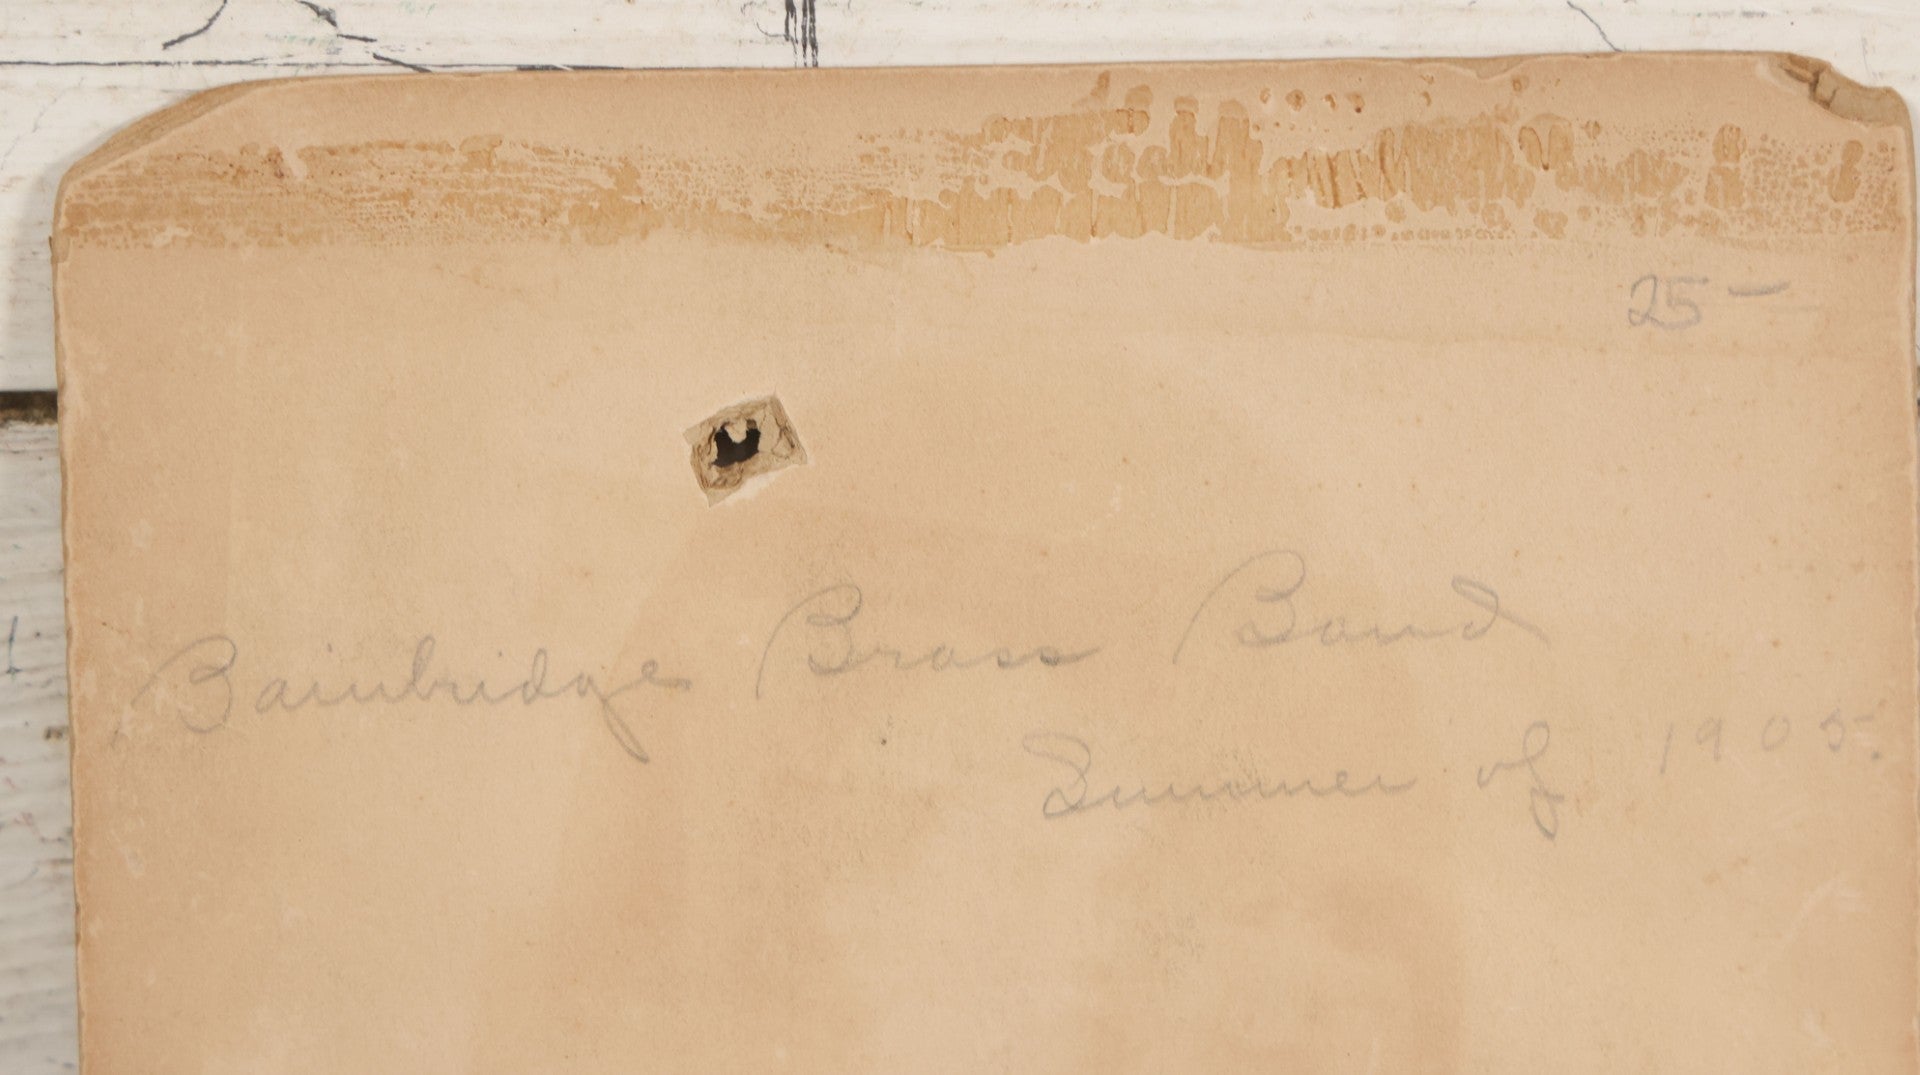 25 —
Bainbridge Brass Band
Summer of 1905.